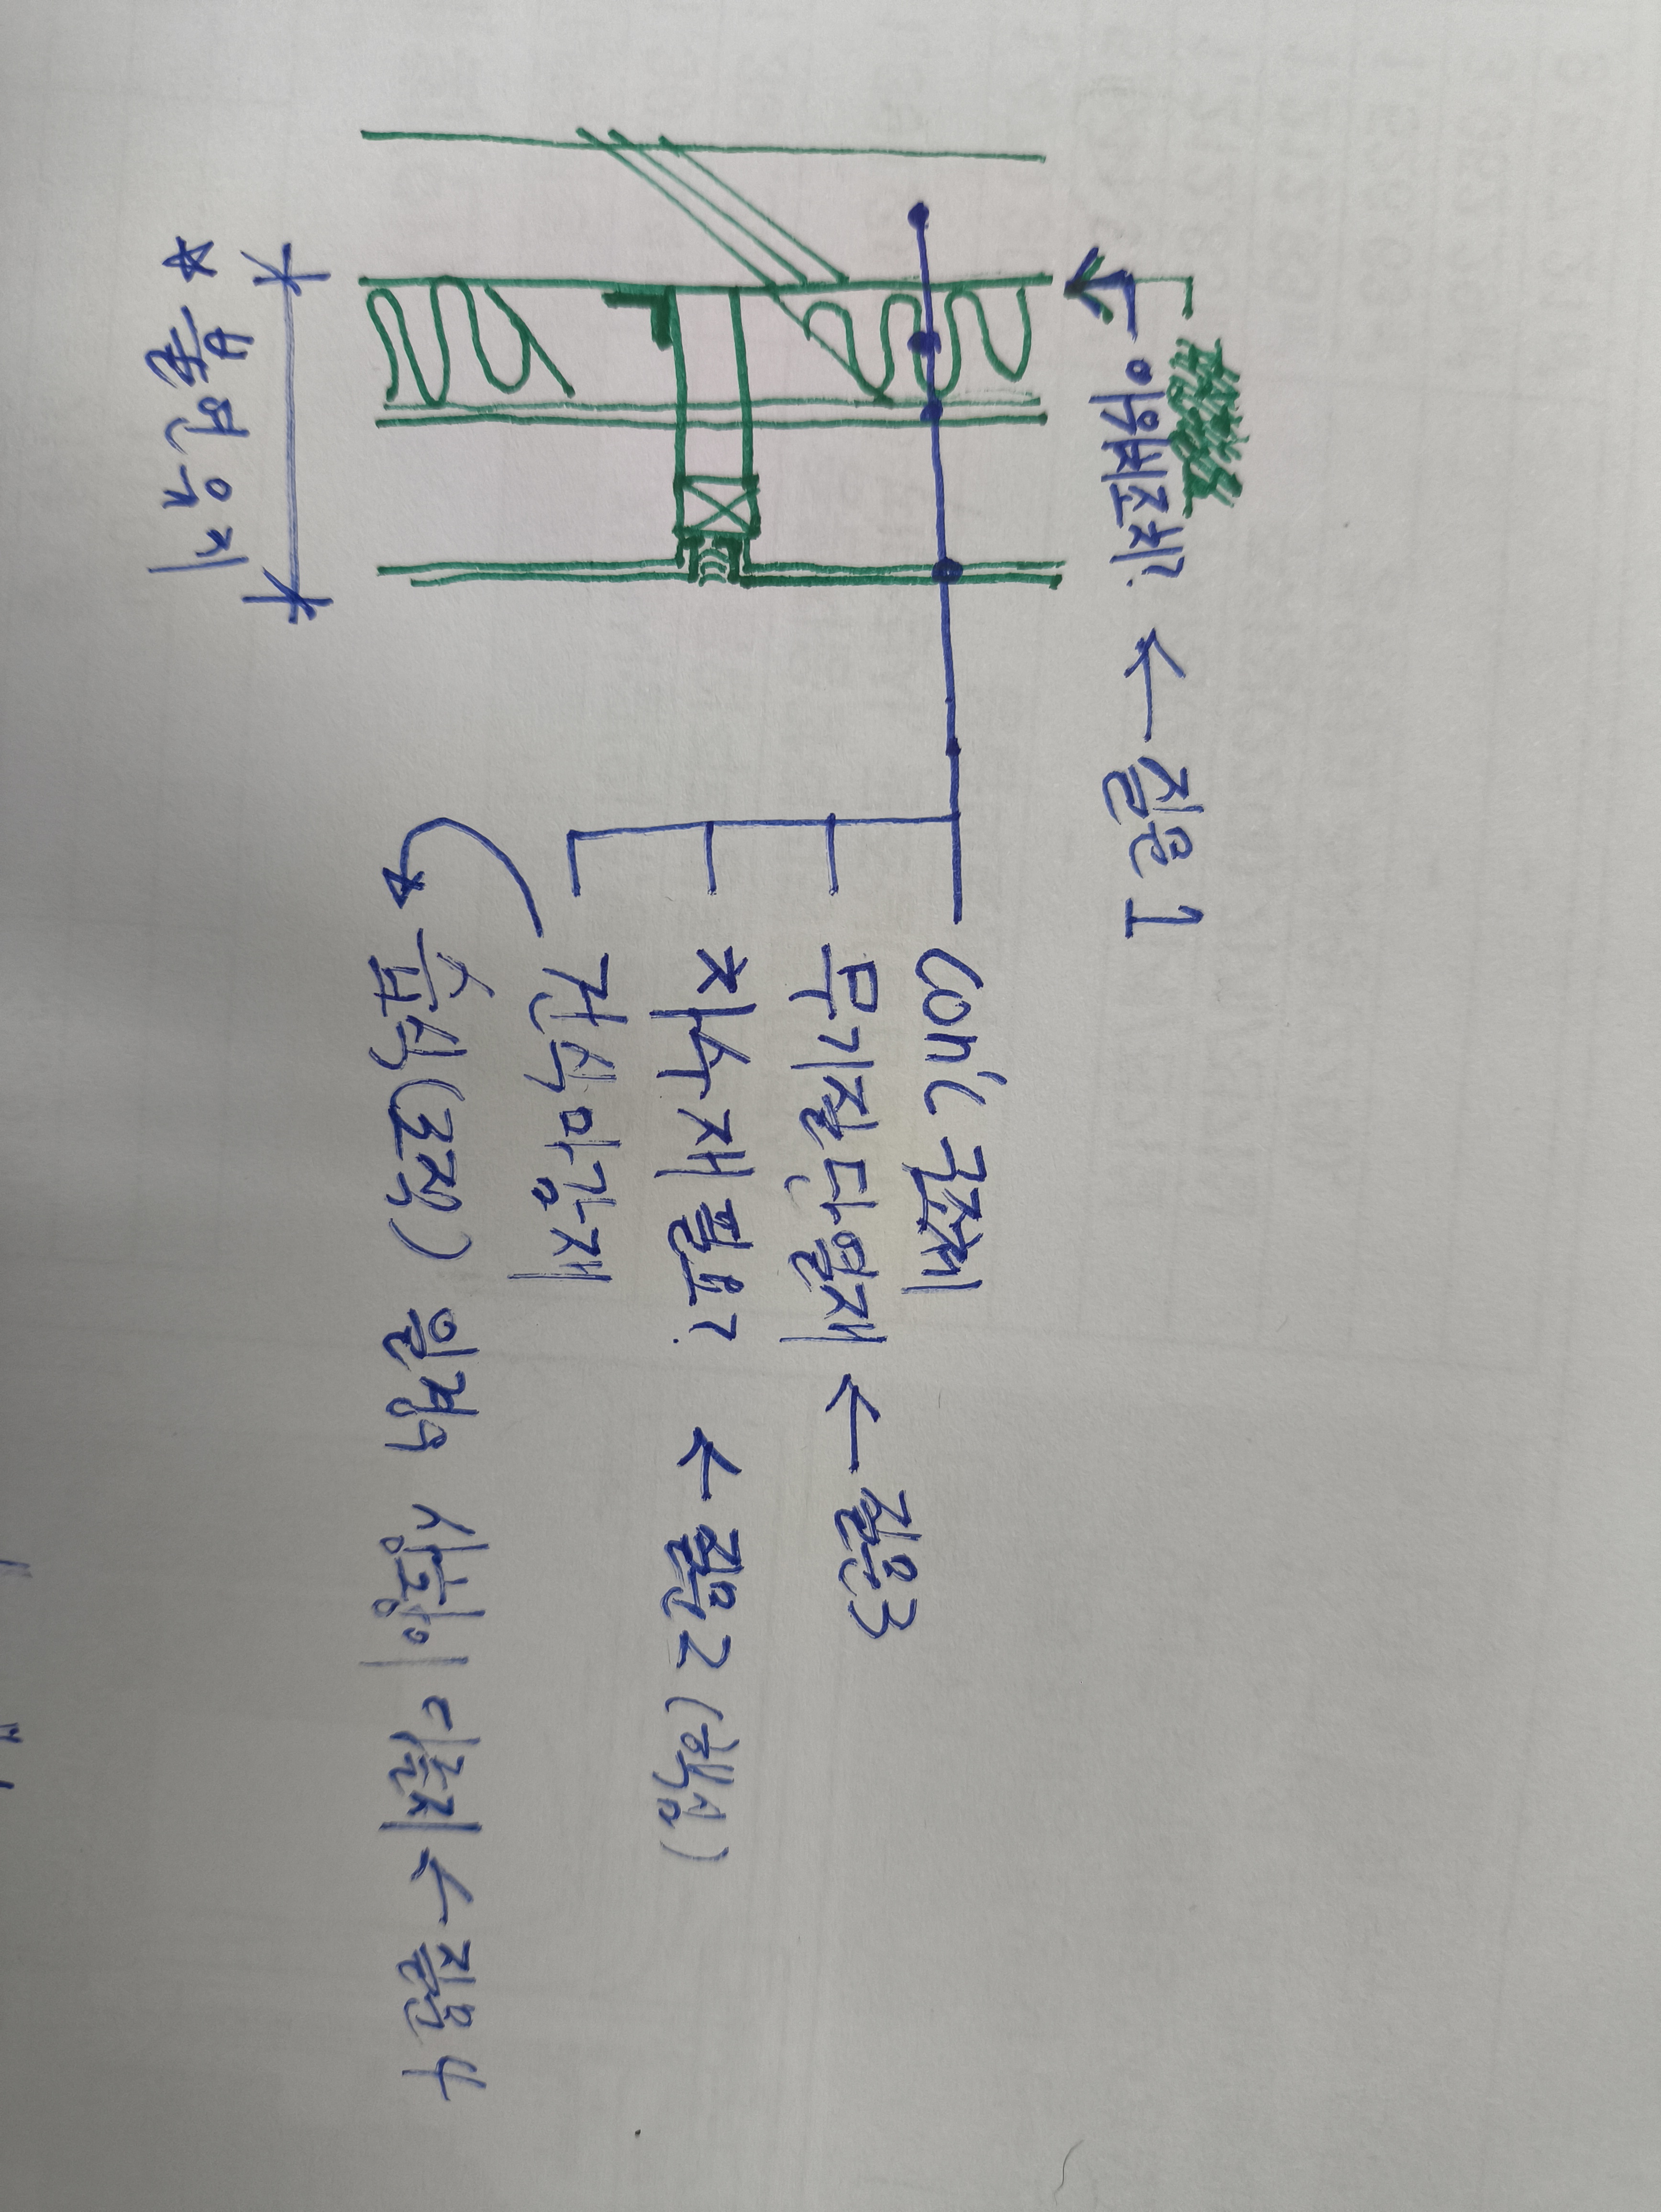 이위조치? ← 질문 1
con'c 구조체
무기질단열재 ← 질문3
치수재 필요? ← 질문2 (핵심)
건식마감재
습식(조적) 일경우 상황이 다른지 ← 질문4
* 불연유지